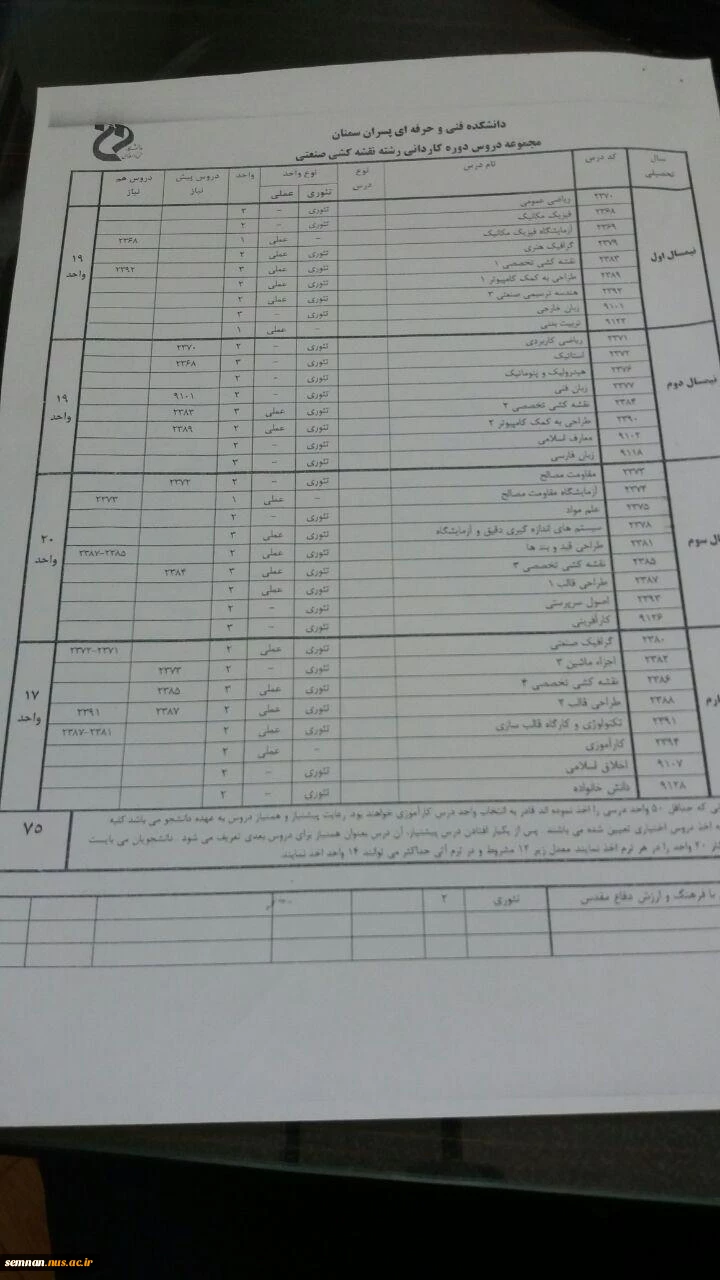 دانشکده فنی و حرفه ای پسران سمنان
مجموعه دروس دوره کاردانی رشته نقشه کشی صنعتی
سال تحصیلی کد درس نام درس نوع درس نوع واحد تئوری عملی واحد دروس پیش نیاز دروس هم نیاز
نیمسال اول
۲۳۷۰ ریاضی عمومی تئوری - ۲
۲۳۶۸ فیزیک مکانیک تئوری - ۲
۲۳۶۹ آزمایشگاه فیزیک مکانیک - عملی ۱ ۲۳۶۸
۲۳۷۹ گرافیک هنری تئوری عملی ۲
۲۳۸۳ نقشه کشی تخصصی ۱ تئوری عملی ۳ ۲۳۹۲
۲۳۸۹ طراحی به کمک کامپیوتر ۱ تئوری عملی ۲
۲۳۹۲ هندسه ترسیمی صنعتی ۲ تئوری عملی ۲
۹۱۰۱ زبان خارجی تئوری - ۳
۹۱۲۳ تربیت بدنی - عملی ۱
۱۹ واحد
نیمسال دوم
۲۳۷۱ ریاضی کاربردی تئوری - ۲ ۲۳۷۰
۲۳۷۲ استاتیک تئوری - ۳ ۲۳۶۸
۲۳۷۶ هیدرولیک و پنوماتیک تئوری - ۲
۲۳۷۷ زبان فنی تئوری - ۲ ۹۱۰۱
۲۳۸۴ نقشه کشی تخصصی ۲ تئوری عملی ۳ ۲۳۸۳
۲۳۹۰ طراحی به کمک کامپیوتر ۲ تئوری عملی ۲ ۲۳۸۹
۹۱۰۲ معارف اسلامی تئوری - ۲
۹۱۱۸ زبان فارسی تئوری - ۳
۱۹ واحد
ال سوم
۲۳۷۳ مقاومت مصالح تئوری - ۲ ۲۳۷۲
۲۳۷۴ آزمایشگاه مقاومت مصالح - عملی ۱ ۲۳۷۳
۲۳۷۵ علم مواد تئوری - ۲
۲۳۷۸ سیستم های اندازه گیری دقیق و آزمایشگاه تئوری عملی ۳
۲۳۸۱ طراحی قید و بند ها تئوری عملی ۲ ۲۳۸۵-۲۳۸۷
۲۳۸۵ نقشه کشی تخصصی ۳ تئوری عملی ۳ ۲۳۸۴
۲۳۸۷ طراحی قالب ۱ تئوری عملی ۲
۲۳۹۳ اصول سرپرستی تئوری - ۲
۹۱۲۶ کارآفرینی تئوری - ۳
۲۰ واحد
ارم
۲۳۸۰ گرافیک صنعتی تئوری عملی ۲ ۲۳۷۱-۲۳۷۲
۲۳۸۲ اجزاء ماشین ۲ تئوری - ۲ ۲۳۷۳
۲۳۸۶ نقشه کشی تخصصی ۴ تئوری عملی ۳ ۲۳۸۵
۲۳۸۸ طراحی قالب ۲ تئوری عملی ۲ ۲۳۸۷ ۲۳۹۱
۲۳۹۱ تکنولوژی و کارگاه قالب سازی تئوری عملی ۲ ۲۳۸۱-۲۳۸۷
۲۳۹۴ کارآموزی - عملی ۲
۹۱۰۷ اخلاق اسلامی تئوری - ۲
۹۱۲۸ دانش خانواده تئوری - ۲
۱۷ واحد
که حداقل ۵۰ واحد درسی را اخذ نموده اند قادر به انتخاب واحد درس کارآموزی خواهند بود. رعایت پیشنیاز و همنیاز دروس به عهده دانشجو می باشد کلیه
اخذ دروس اختیاری تعیین شده می باشند . پس از یکبار افتادن درس پیشنیاز، آن درس بعنوان همنیاز برای دروس بعدی تعریف می شود . دانشجویان می بایست
۲۰ واحد را در هر ترم اخذ نمایند معدل زیر ۱۲ مشروط و در ترم آتی حداکثر می توانند ۱۴ واحد اخذ نمایند
۷۵
با فرهنگ و ارزش دفاع مقدس تئوری ۲
semnan.nus.ac.ir